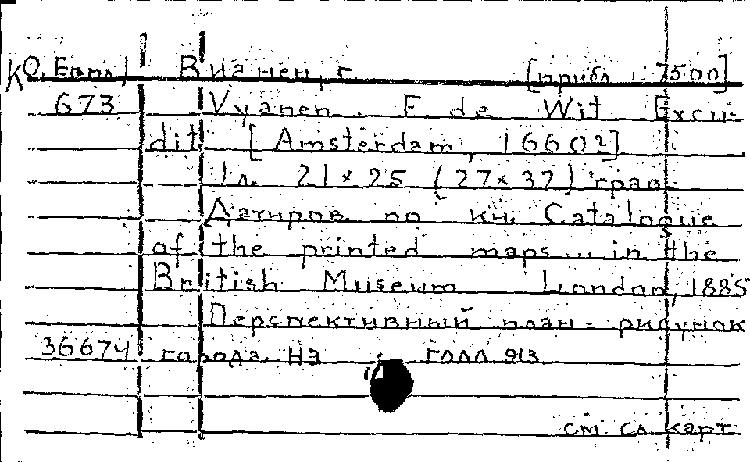 К0, Европ/ Вианен, г. [прибл. 1:7500]
673 Vyanen. F. de Wit Excu-
dit [Amsterdam, 1660?]
1 л. 21×25 (27×37) грав.
Датиров. по кн. Catalogue
of the printed maps... in the
British Museum London, 1885
Перспективный план-рисунок
36674 города. На голл. яз.
см. сл. карт.